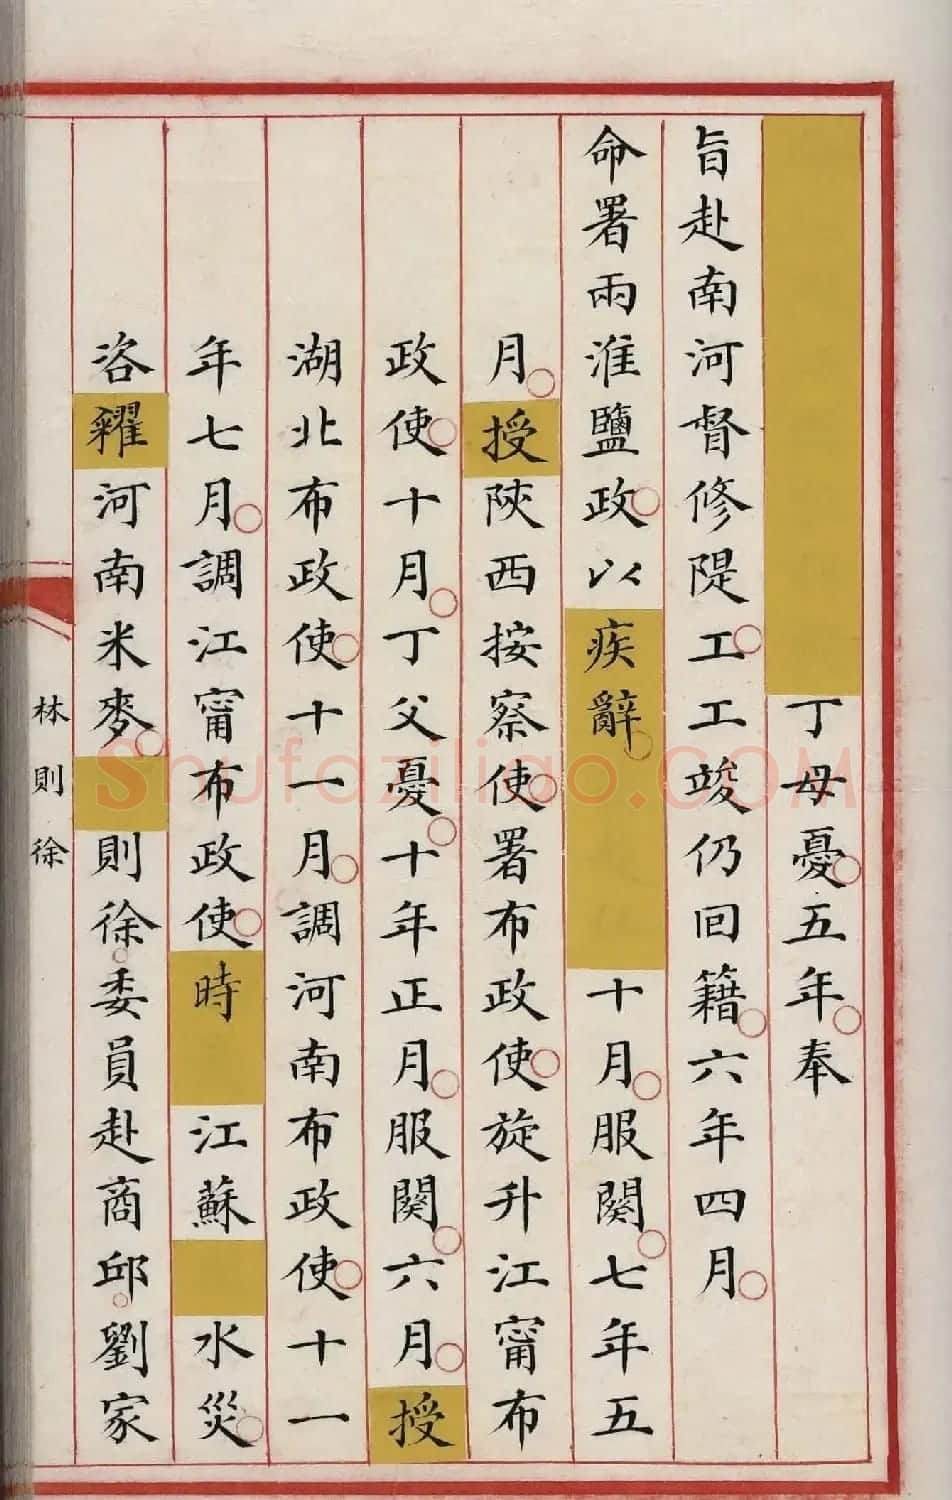 丁母憂五年奉
旨赴南河督修隄工工竣仍回籍六年四月
命署兩淮鹽政以疾辭十月服闋七年五
月授陝西按察使署布政使旋升江甯布
政使十月丁父憂十年正月服闋六月授
湖北布政使十一月調河南布政使十一
年七月調江甯布政使時江蘇水災
咨糴河南米麥則徐委員赴商邱劉家
林則徐
Shufaziliao.COM